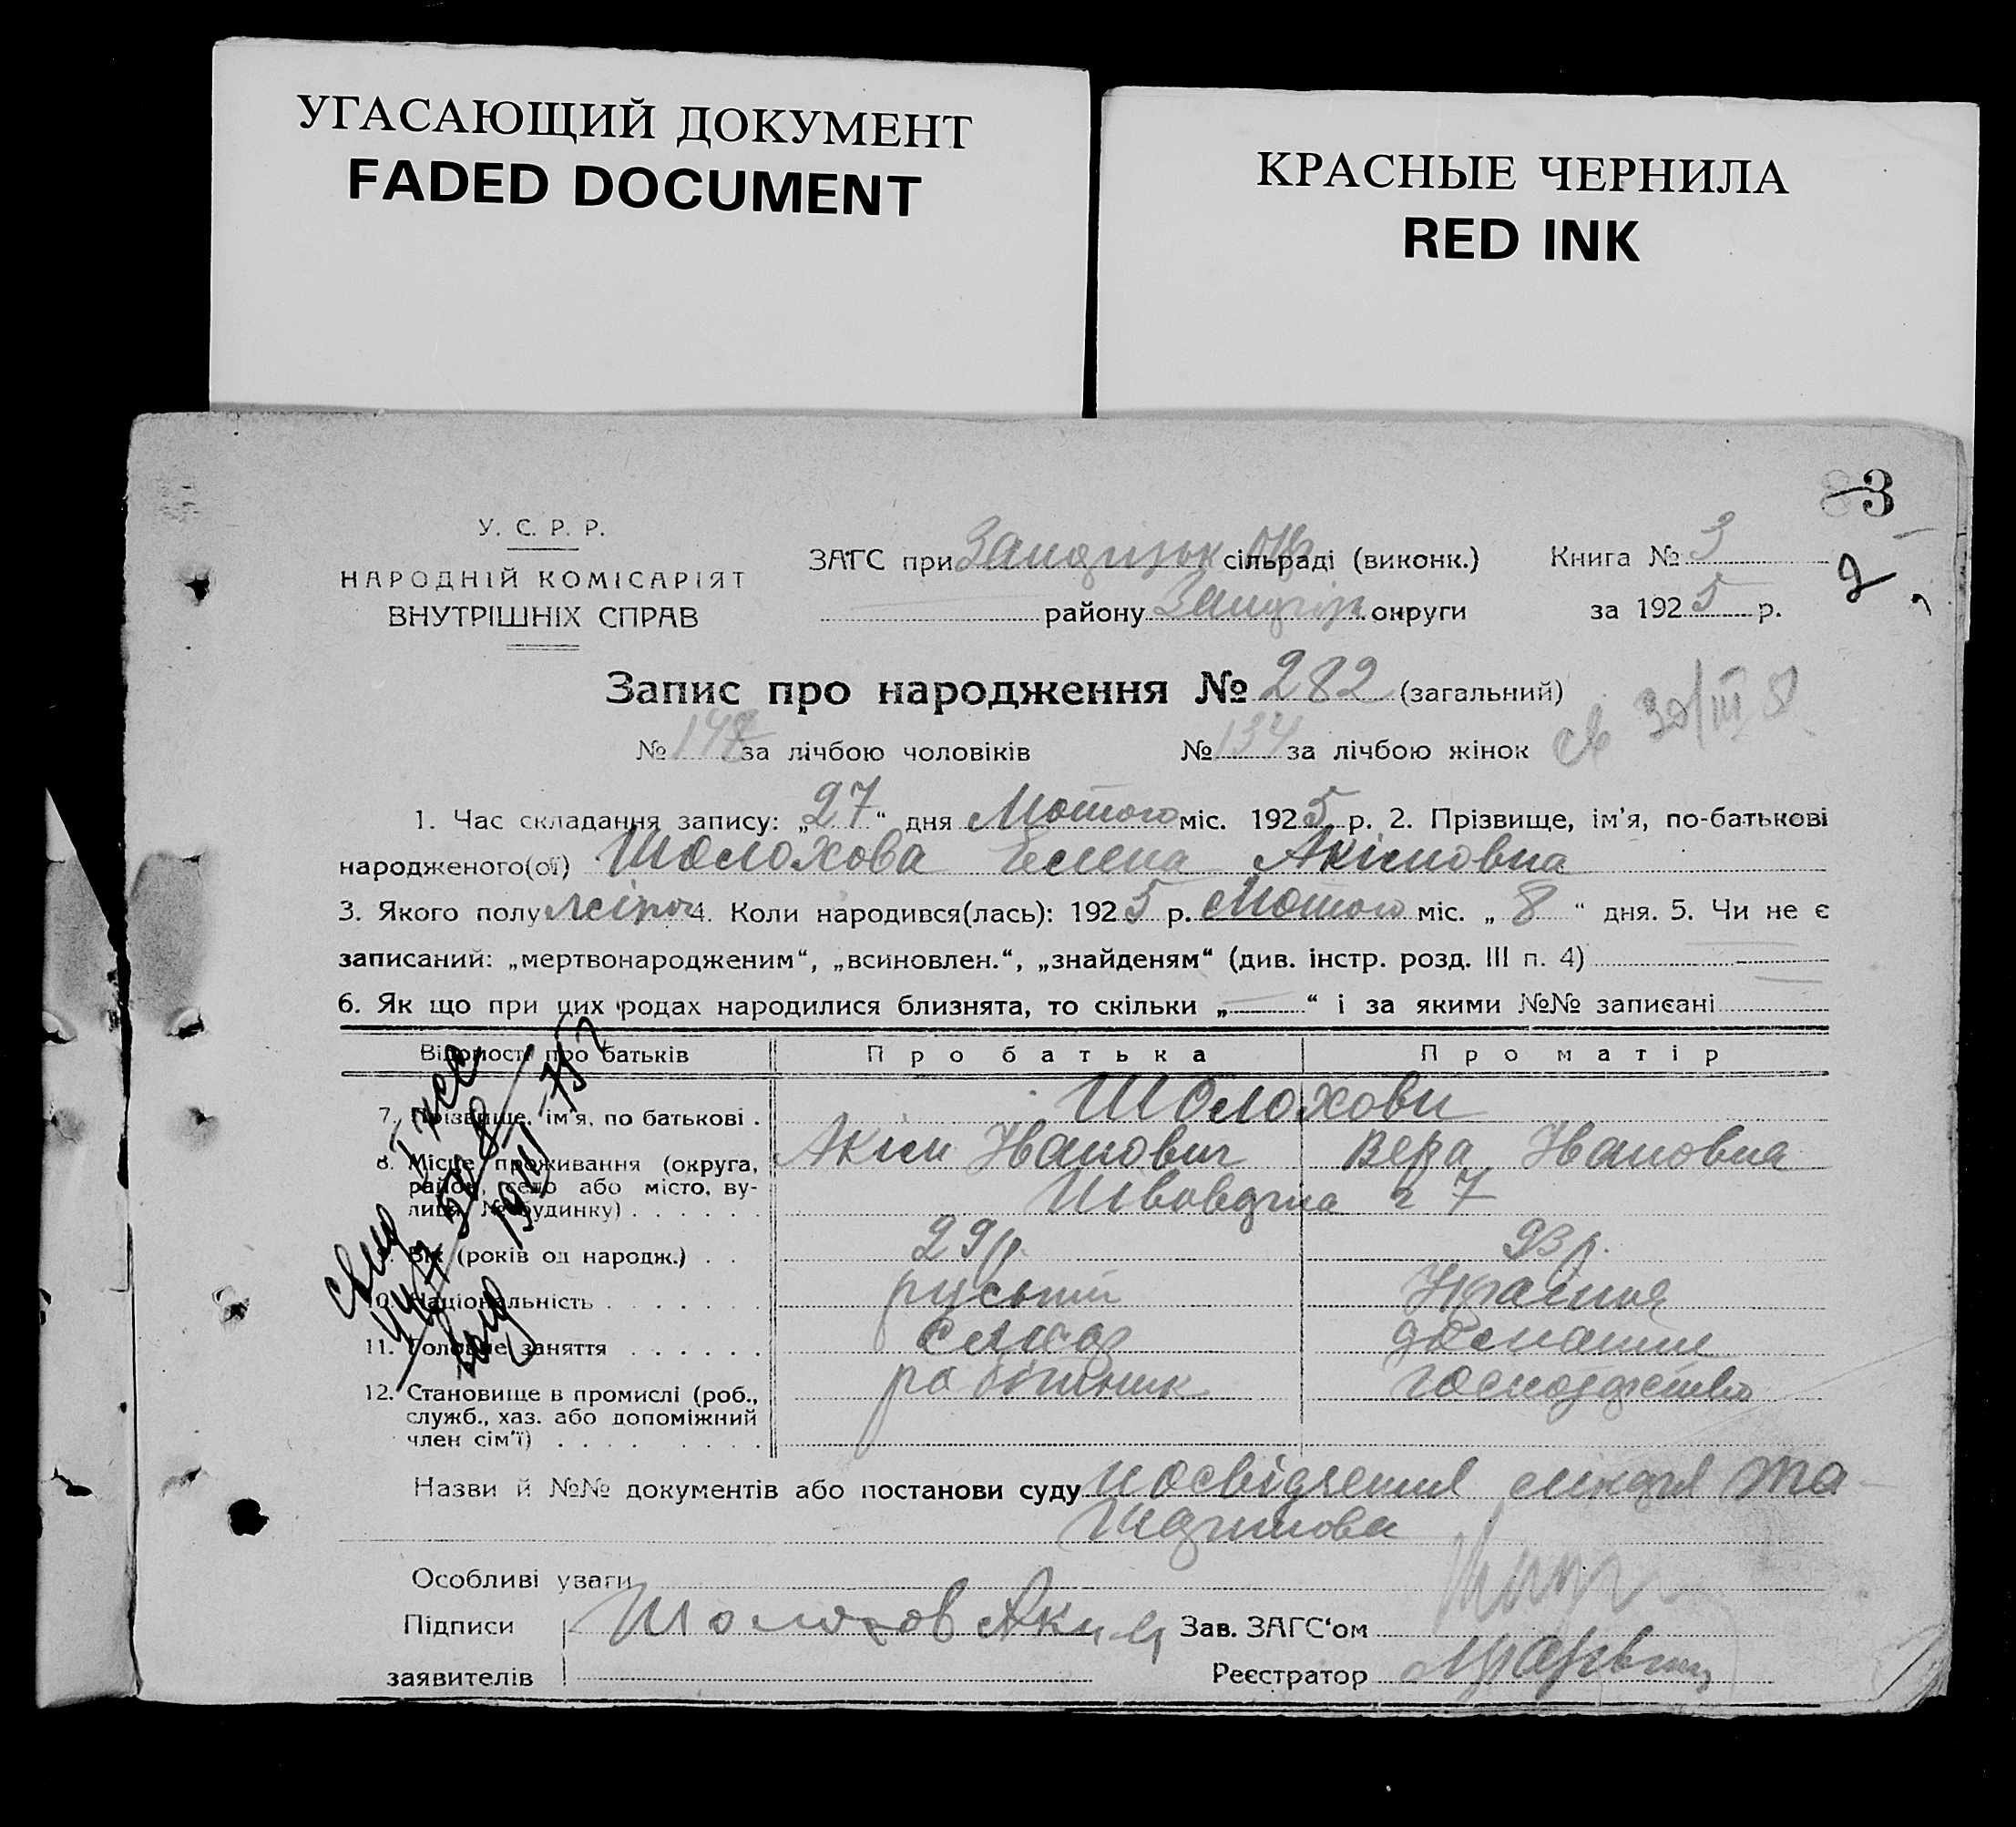 УГАСАЮЩИЙ ДОКУМЕНТ
FADED DOCUMENT
КРАСНЫЕ ЧЕРНИЛА
RED INK
3
У. С. Р. Р.
НАРОДНІЙ КОМІСАРІЯТ
ВНУТРІШНІХ СПРАВ
ЗАГС при сільраді (виконк.) Книга № 3
району округи за 1925 р.
2
Запис про народження № 282 (загальний)
№ за лічбою чоловіків № 134 за лічбою жінок
1. Час складання запису: „27“ дня Лютого міс. 1925 р. 2. Прізвище, ім'я, по-батькові
народженого(ої) Шолохова Елена Акімовна
3. Якого полу жіноч 4. Коли народився(лась): 1925 р. Лютого міс. „8“ дня. 5. Чи не є
записаний: „мертвонародженим“, „всиновлен.“, „знайденям“ (див. інстр. розд. III п. 4)
6. Як що при цих родах народилися близнята, то скільки „ “ і за якими №№ записані
Відомості про батьків Про батька Про матір
7. Прізвище, ім'я, по батькові . Шолохови
Акім Іванович Вера Івановна
8. Місце проживання (округа,
район, село або місто, ву-
лиця, № будинку) . . . . . . 7
9. Вік (років од народж.) . . 29 р. 23 р.
10. Національність . . . . . . . руський Україн
11. Головне заняття . . . . . . слюсар домашнє
12. Становище в промислі (роб.,
служб., хаз. або допоміжний
член сім'ї) . . . . . . . . . робітник господарство
Назви й №№ документів або постанови суду посвідчення міліції та
Особливі уваги
Підписи Шолохов Аким Зав. ЗАГС'ом
заявителів Реєстратор